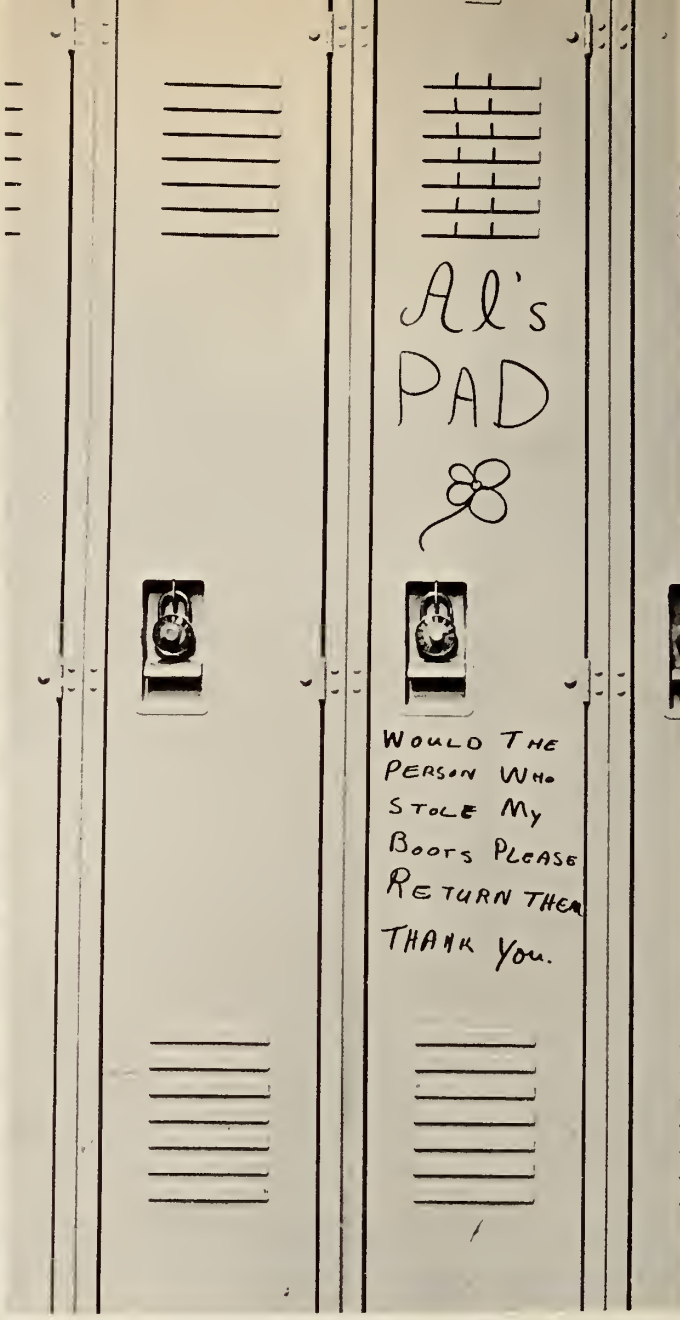 Al's
PAD
WOULD THE
PERSON WHO
STOLE My
BOOTS PLEASE
RETURN THEM
THANK You.